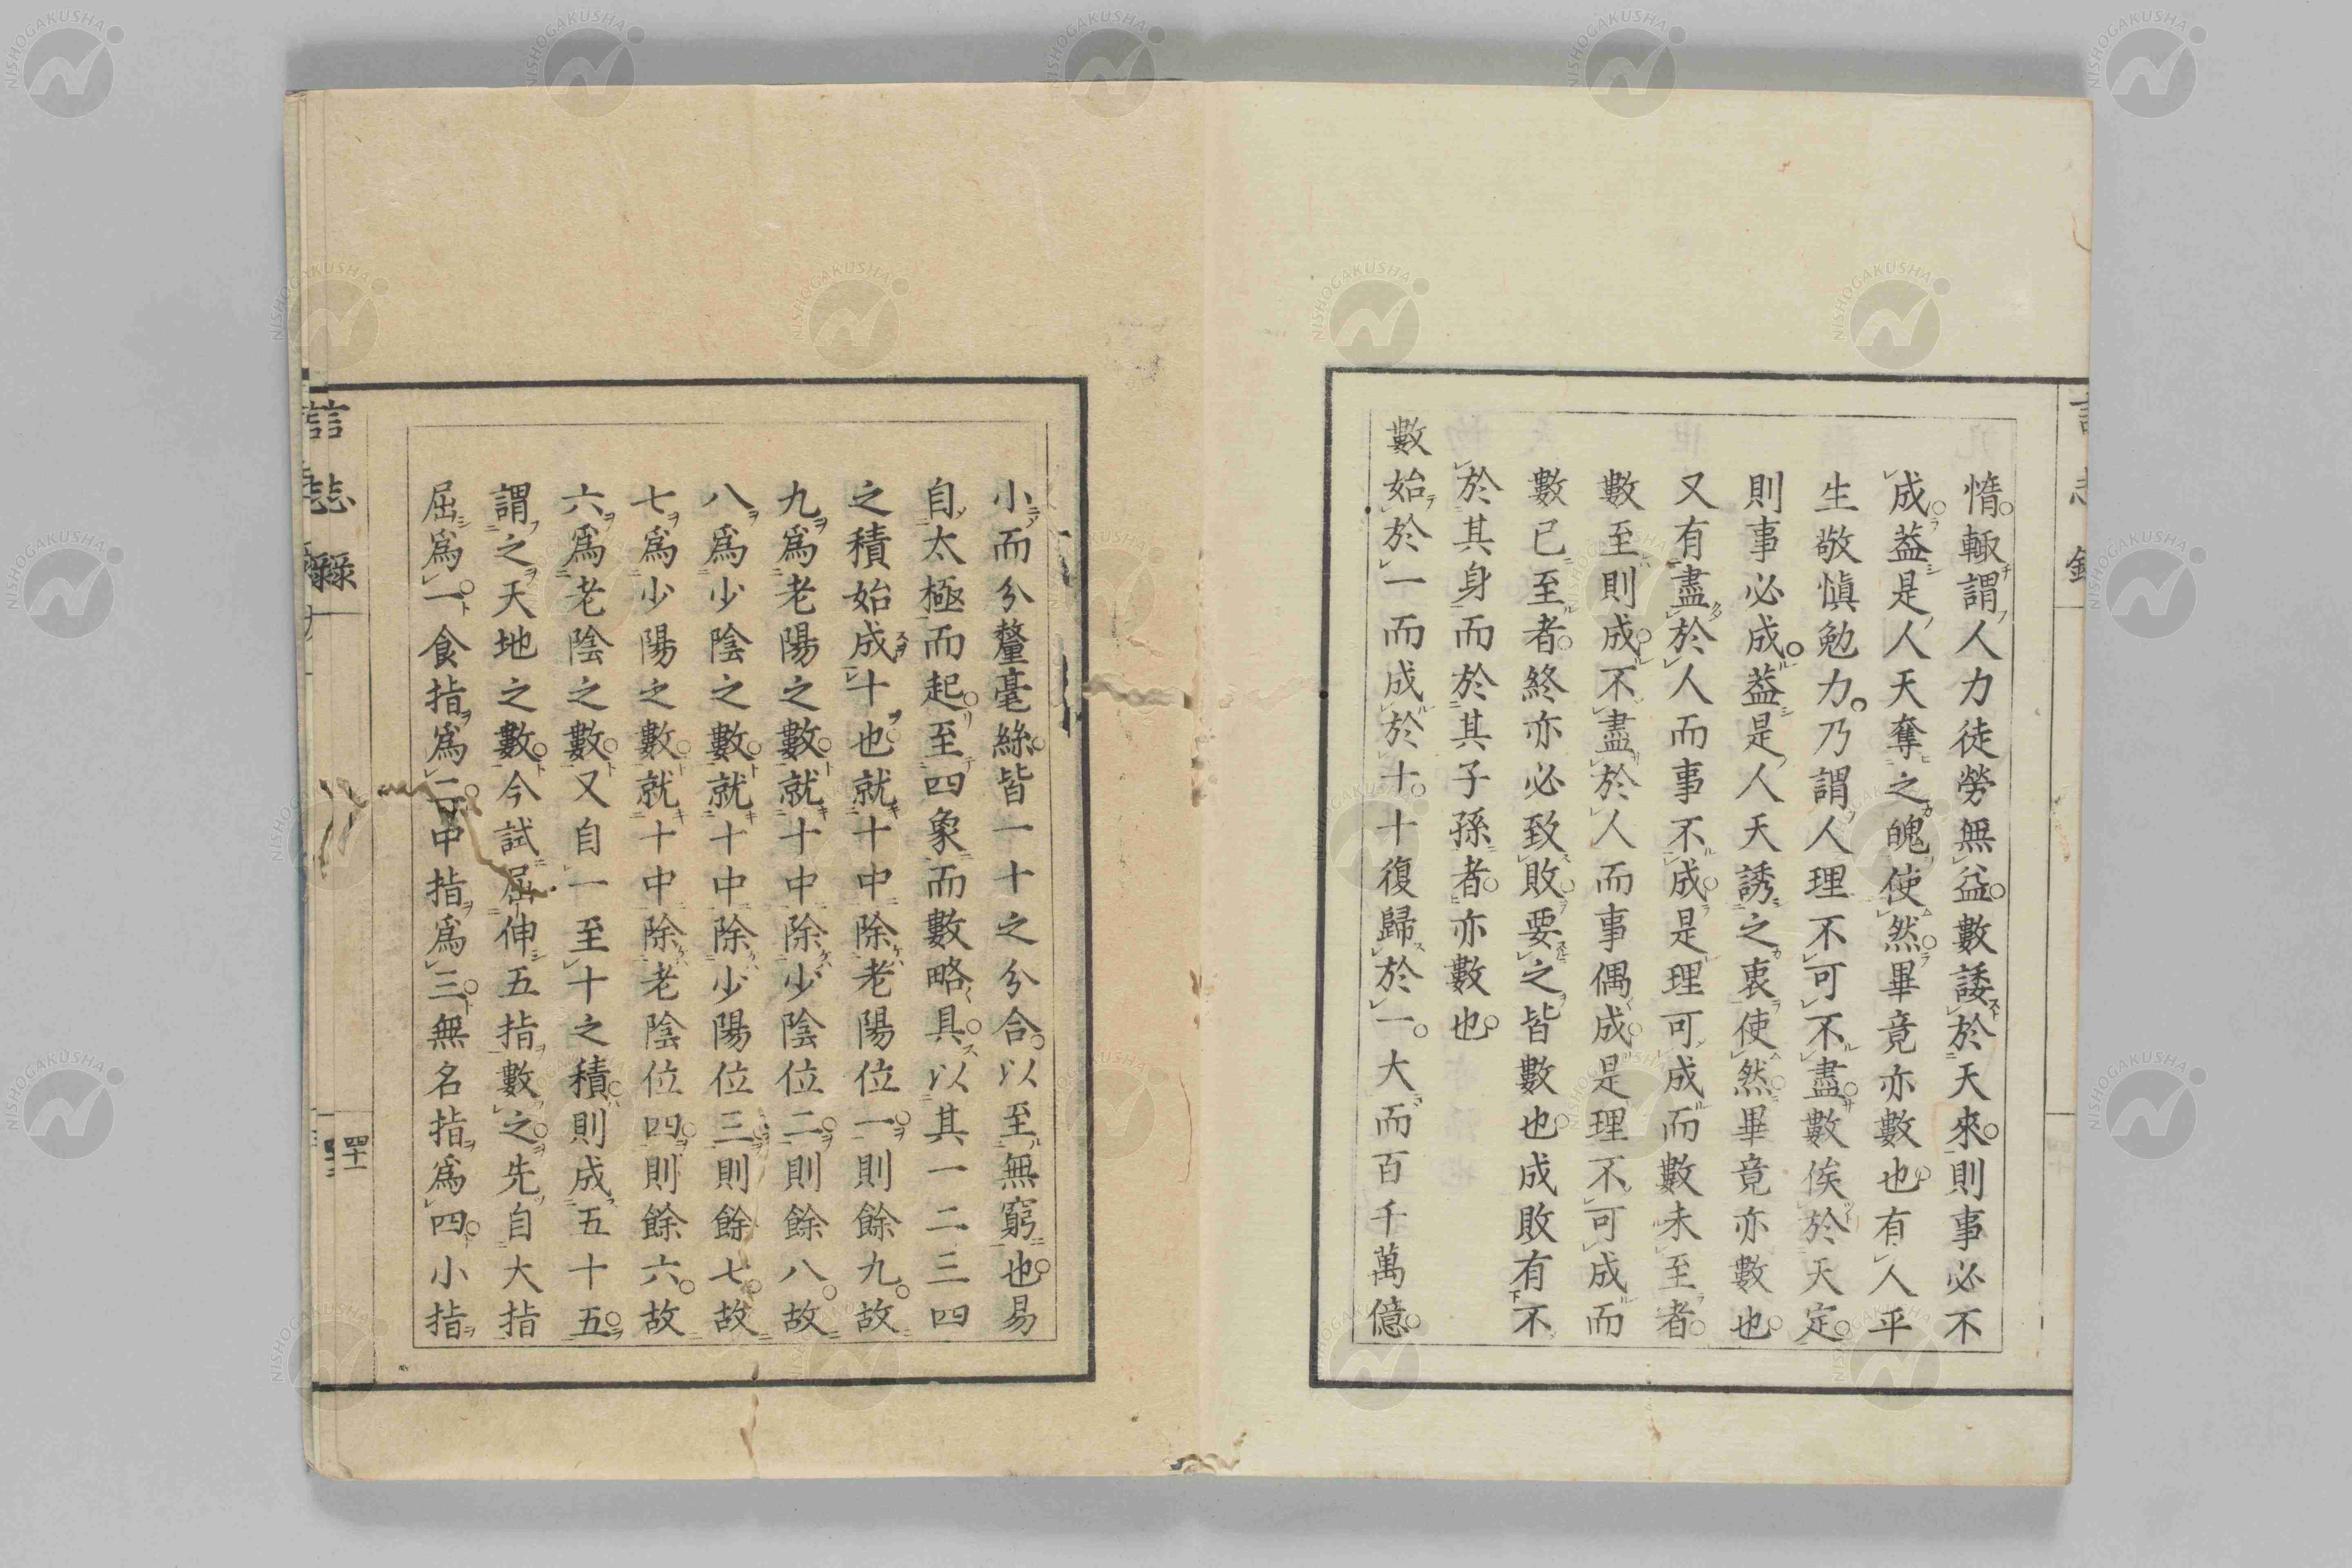 惰輙謂人力徒勞無益數諉於天來則事必不
成蓋是人天奪之魄使然畢竟亦數也有人平
生敬愼勉力乃謂人理不可不盡數俟於天定
則事必成蓋是人天誘之衷使然畢竟亦數也
又有盡於人而事不成是理可成而數未至者
數至則成不盡於人而事偶成是理不可成而
數已至者終亦必致敗要之皆數也成敗有不
於其身而於其子孫者亦數也
數始於一而成於十十復歸於一大而百千萬億
小而分釐毫絲皆一十之分合以至無窮也易
自太極而起至四象而數略具以其一二三四
之積始成十也就十中除老陽位一則餘九故
九爲老陽之數就十中除少陰位二則餘八故
八爲少陰之數就十中除少陽位三則餘七故
七爲少陽之數就十中除老陰位四則餘六故
六爲老陰之數又自一至十之積則成五十五
謂之天地之數今試屈伸五指數之先自大指
屈爲一食指爲二中指爲三無名指爲四小指